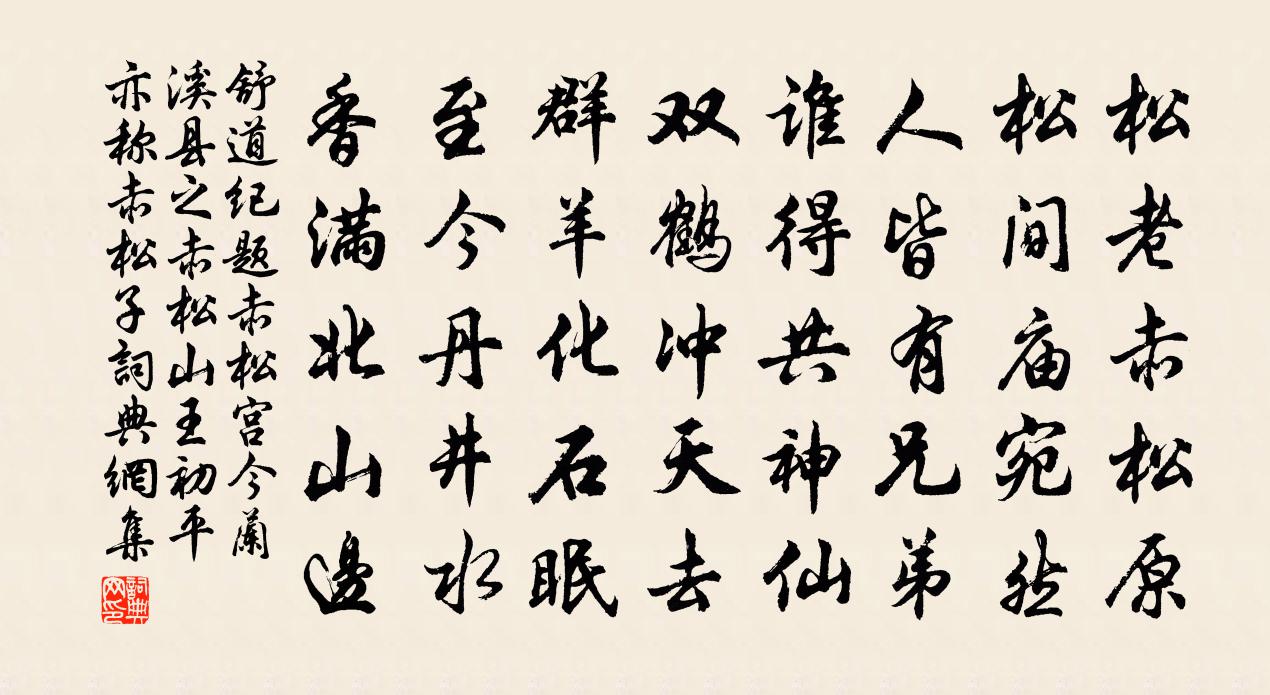 松老赤松原
松间庙宛然
人皆有兄弟
谁得共神仙
双鹤冲天去
群羊化石眠
至今丹井水
香满北山邊
舒道纪题赤松宫今蘭
溪县之赤松山王初平
亦称赤松子詞典網集
詞典
网印